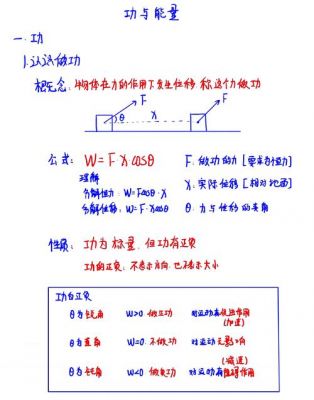 功与能量
一.功
1.认识做功
概念:物体在力的作用下发生位移 称这个力做功
F F
θ x
公式: W=F·x cosθ F:做功的力[要求为恒力]
理解 x:实际位移[相对地面]
分解恒力: W=Fcosθ·x
分解位移: W=F·xcosθ θ:力与位移的夹角
性质: 功为标量,但功有正负
功的正负:不表示方向,也不表示大小
功的正负
θ为锐角 W>0 做正功 对运动有促进作用
(加速)
θ为直角 W=0 不做功 对运动无影响
(减速)
θ为钝角 W<0 做负功 对运动有阻碍作用